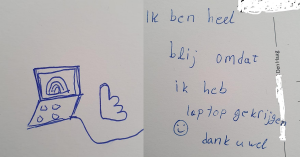 Ik ben heel
blij omdat
ik heb
laptop gekrijgen
dank u wel